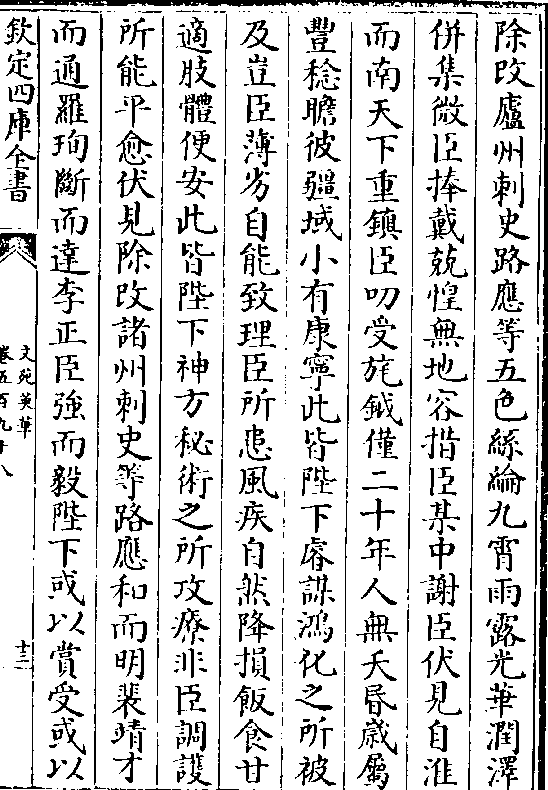 除改廬州刺史路應等五色絲綸九霄雨露光華潤澤
併集微臣捧戴兢惶無地容措臣某中謝臣伏見自淮
而南天下重鎮臣叨受旄鉞僅二十年人無夭昬歲屬
豐稔瞻彼疆域小有康寧此皆陛下睿謀鴻化之所被
及豈臣薄劣自能致理臣所患風疾自然降損飯食甘
適肢體便安此皆陛下神方秘術之所攻療非臣調護
所能平愈伏見除改諸州刺史等路應和而明裴靖才
而通羅珦斷而達李正臣強而毅陛下或以賞受或以
欽定四庫全書
文苑英華
卷五百九十八
十二